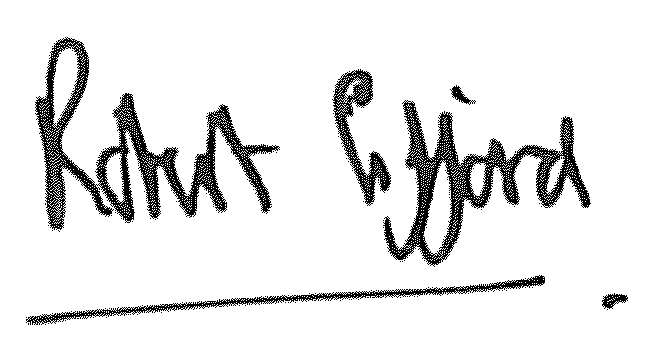 Robert Gifford